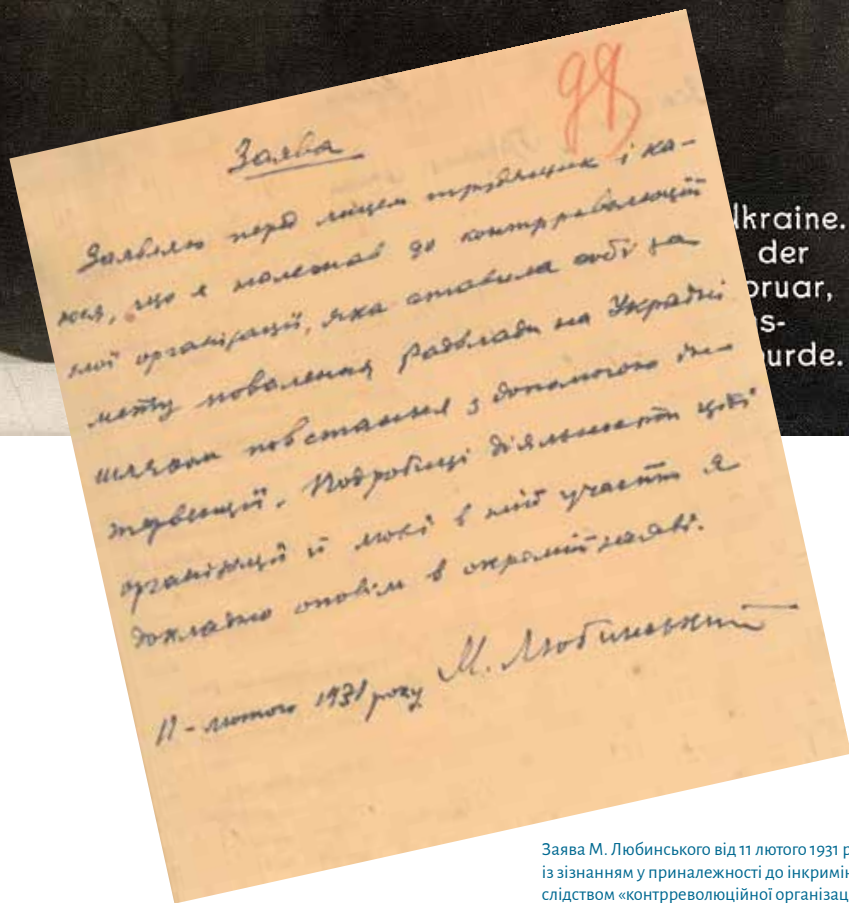 98
Заява
Заявляю перед лицем трудящих і ка-
юся, що я належав до контрреволюцій
ної організації, яка ставила собі за
мету повалення Радвлади на Україні
шляхом повстання з допомогою ін-
тервенції. Подробиці діяльности цієї
організації й моєї в ній участи я
докладно оповім в окремій заяві.
11 - лютого 1931 року М. Любинський
kraine.
der
bruar,
s-
urde.
Заява М. Любинського від 11 лютого 1931 р
із зізнанням у приналежності до інкримін
слідством «контрреволюційної організац